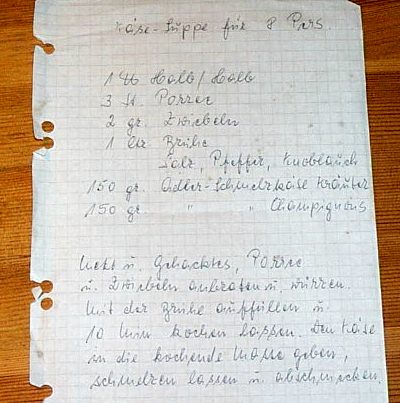 Käse-Suppe für 8 Pers.
1 ℔ Halb/Halb
3 St. Porree
2 gr. Zwiebeln
1 ltr Brühe
Salz, Pfeffer, Knoblauch
150 gr. Adler-Schmelzkäse Kräuter
150 gr. " " Champignons
u. Gehacktes, Porree
u. Zwiebeln anbraten u. würzen.
Mit der Brühe auffüllen u.
10 Min kochen lassen. Den Käse
in die kochende Masse geben,
schmelzen lassen u. abschmecken.